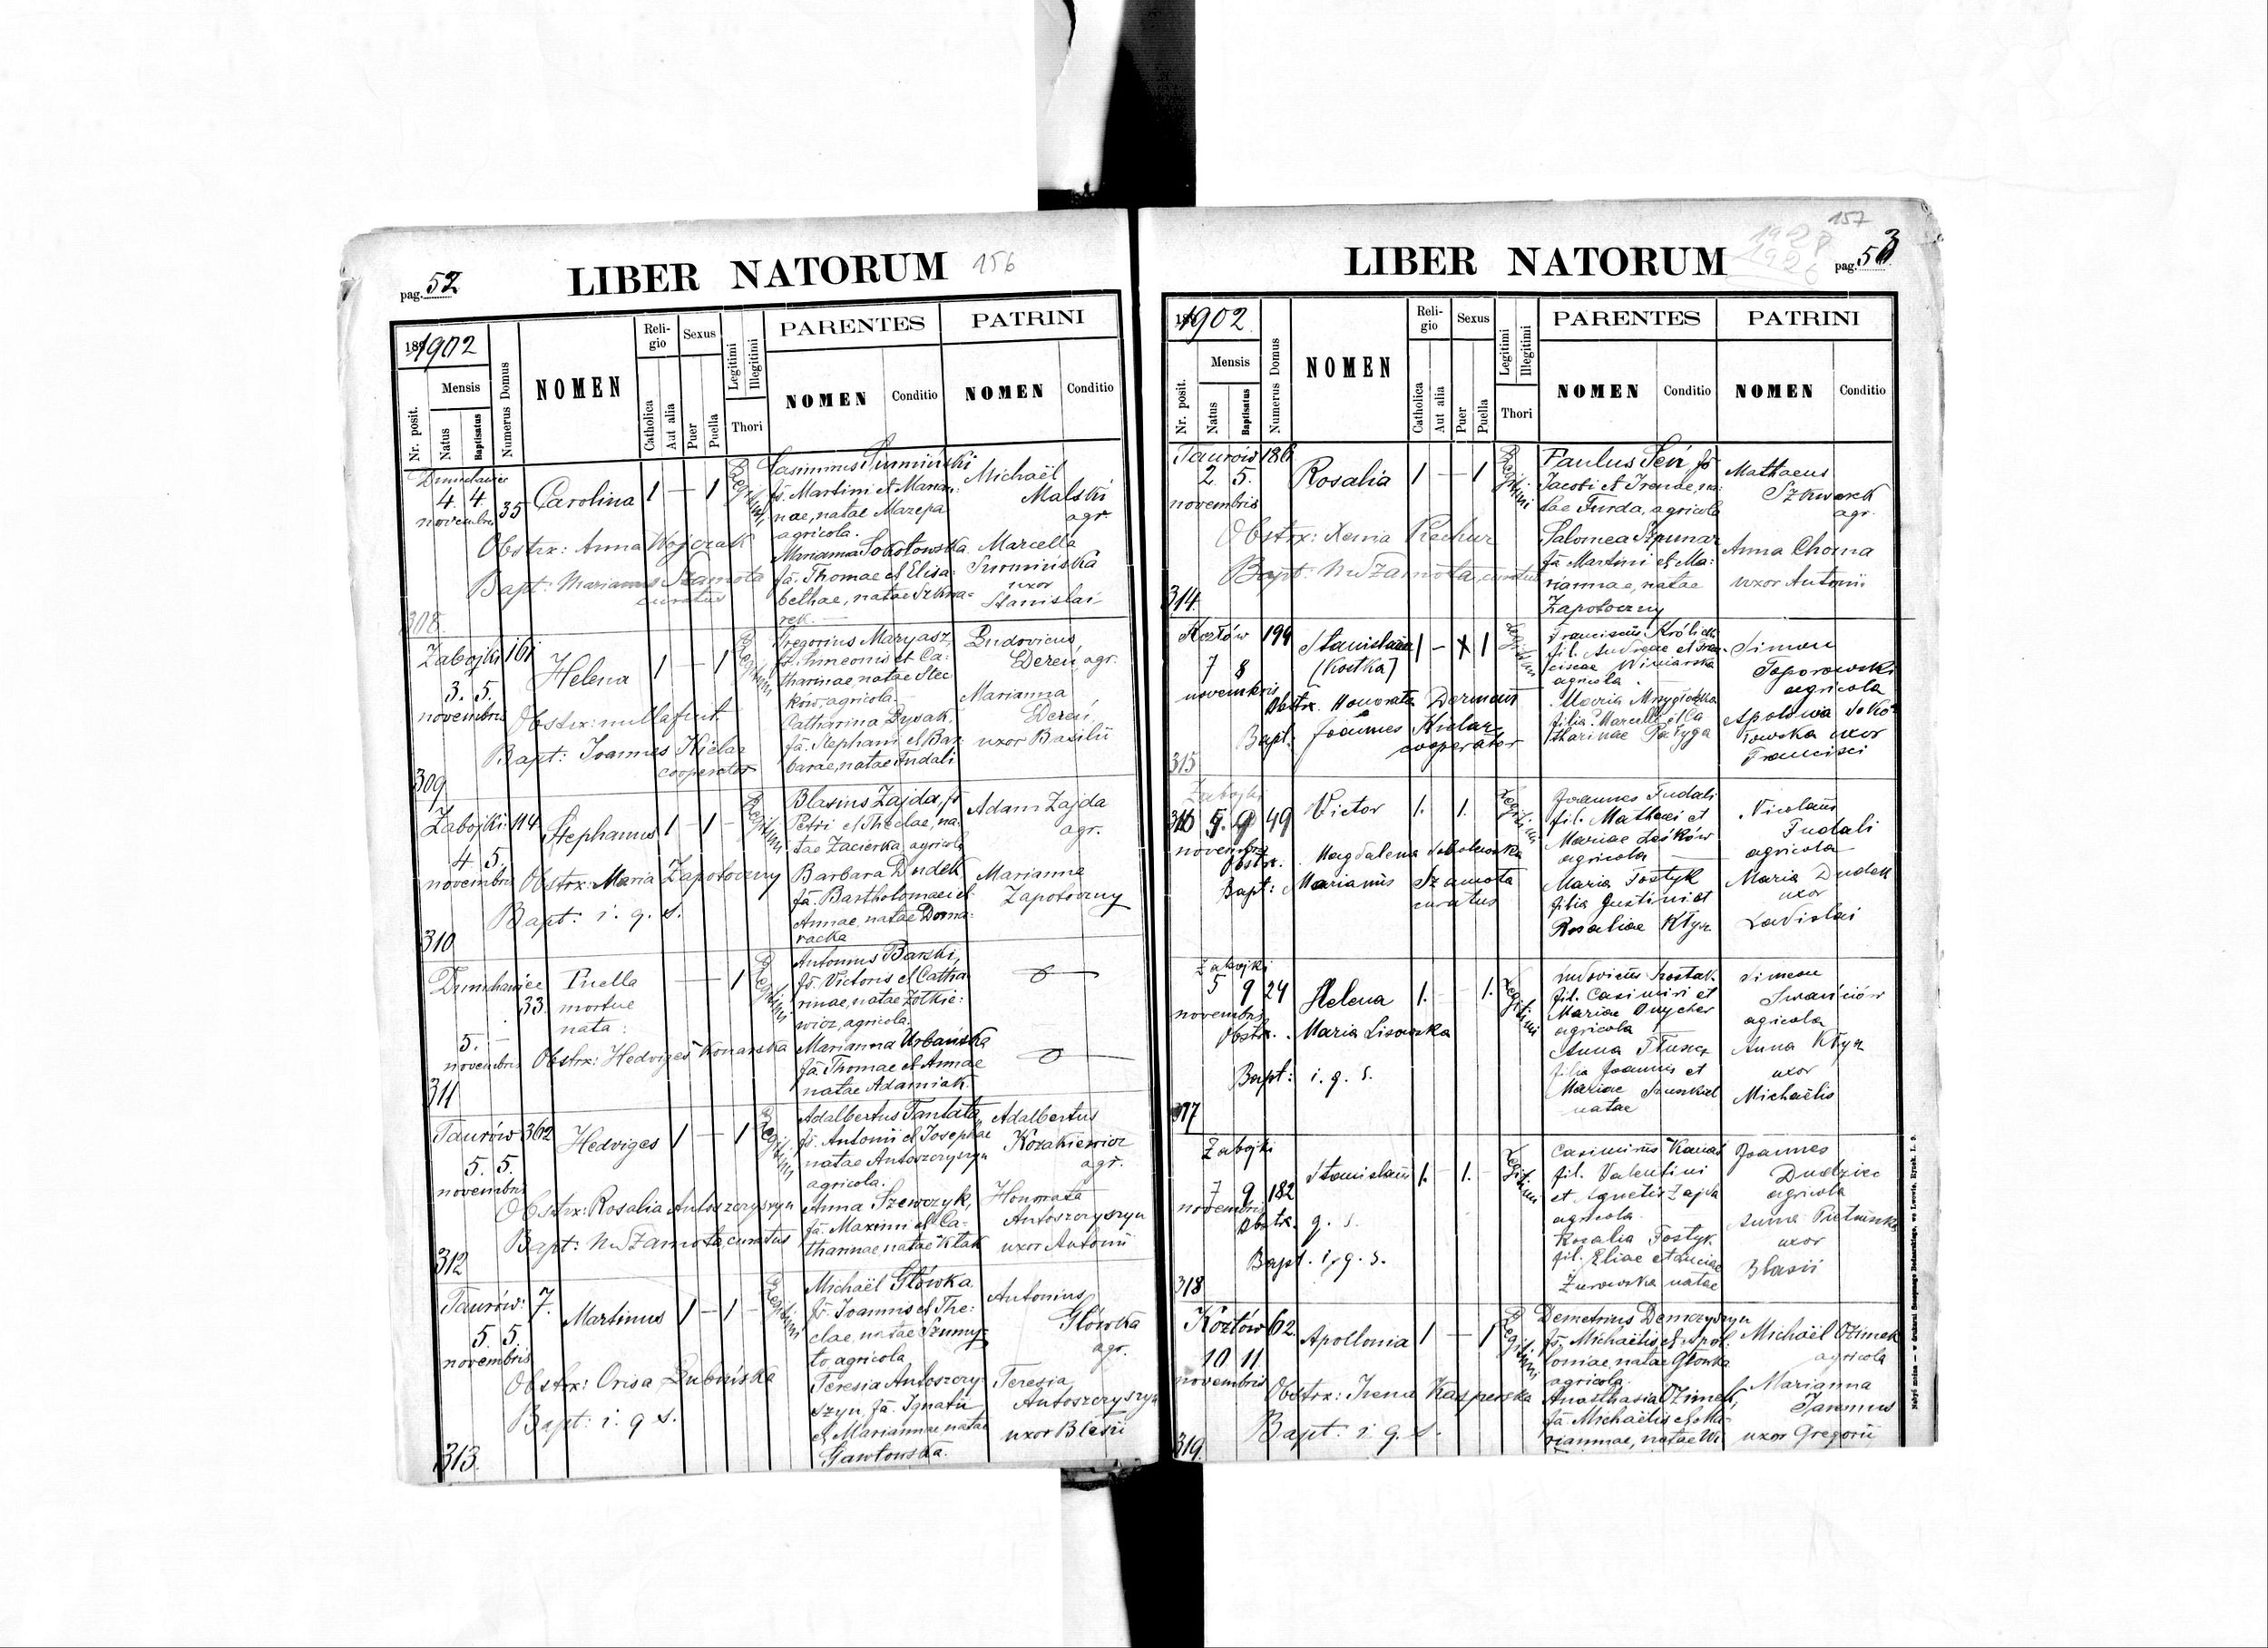 pag. 52
LIBER NATORUM 156
1902
Nr. posit.
Mensis
Natus
Baptisatus
Numerus Domus
NOMEN
Reli-
gio
Catholica
Aut alia
Sexus
Puer
Puella
Legitimi
Illegitimi
Thori
PARENTES
NOMEN
Conditio
PATRINI
NOMEN
Conditio
4. 4.
novembris
35
Carolina
1 — 1
Legitimi
Casimirus
fs. Martini et Marian-
nae, natae Mazepa
agricola.
Marianna Sokołowska
fa. Thomae et Elisa-
bethae, natae Szkwa-
rek.
Michaël
Malski
agr.
Marcella
uxor
Stanislai
Obstrx: Anna Wojczak
Bapt: Marianus Szamota
curatus
308.
Zabojki 161
3. 5.
novembris
Helena
1 — 1
Legitimi
Gregorius Maryasz,
fs. Simeonis et Ca-
tharinae, natae Stec
ków, agricola.
Catharina Dysak,
fa. Stephani et Bar-
barae, natae Fudali
Ludovicus
Dereń, agr.
Marianna
Dereń,
uxor Basilii
Obstrx: nulla fuit.
Bapt: Joannes Kielar
cooperator
309
Zabojki 114
4 5.
novembris
Stephanus
1 — 1 —
Legitimi
Blasius Zajda, fs
Petri et Theclae, na-
tae Zacierka, agricola
Barbara Dudek
fa. Bartholomaei et
Annae, natae Doma-
racka
Adam Zajda
agr.
Marianna
Zapotoczny
Obstrx: Maria Zapotoczny
Bapt: i. q. s.
310
33.
5. —
novembris
Puella
mortue
nata.
— 1
Legitimi
Antonius Barski,
fs. Victoris et Catha
rinae, natae Żółkie-
wicz, agricola.
Marianna Urbańska
fa. Thomae et Annae
natae Adamiak.
Obstrx: Hedviges Konarska
311
Taurów 362
5. 5.
novembris
Hedviges
1 — 1
Legitimi
Adalbertus Tantata,
fs. Antonii et Josephae
natae Antoszczyszyn
agricola.
Anna Szewczyk,
fa. Maximi et Ca-
tharinae, natae Kłak
Adalbertus
Kozakiewicz
agr.
Honorata
Antoszczyszyn
uxor Antonii
Obstrx: Rosalia Antoszczyszyn
Bapt: M Szamota, curatus
312
Taurów: 7.
5 5.
novembris
Martinus
1 — 1 —
Legitimi
Michaël Główka
fs. Joannis et The-
clae, natae Szumy-
ło, agricola
Teresia Antoszczy-
szyn, fa. Ignatii
et Mariannae, natae
Gawłowska.
Antonius
Główka
agr.
Teresia
Antoszczyszyn
uxor Blasii
Obstrx: Orisa Dubińska
Bapt: i. q s.
313.
157
pag. 53
LIBER NATORUM
1902
Nr. posit.
Mensis
Natus
Baptisatus
Numerus Domus
NOMEN
Reli-
gio
Catholica
Aut alia
Sexus
Puer
Puella
Legitimi
Illegitimi
Thori
PARENTES
NOMEN
Conditio
PATRINI
NOMEN
Conditio
Taurów 186
2. 5.
novembris
Rosalia
1 — 1
Legitimi
Paulus Seń, fs
Jacobi et Irenae, na-
tae Furda, agricola
Salomea Szpunar
fa Martini et Ma-
riannae, natae
Zapotoczny
Mathaeus
Szkwarek
agr.
Anna Choma
uxor Antonii
Obstrx: Xenia
Bapt: M Szamota, curatus
314.
Kozłów 199
7 8
novembris
Stanislaus
(Kostka)
1 — X 1
Legitimi
Franciscus Królick
fil. Andreae et Fran-
ciscae Winiarska
agricola.
Maria
filia Marcelli et Ca
tharinae Pałyga
Simon
Toporowski
agricola
Apolonia Soko-
łowska uxor
Francisci
Obstx. Honorata
Bapt: Joannes Kielar
cooperator
315
Zabojki
316 5. 9 49
novembris
Victor
1. 1.
Legitimi
Joannes Fudali
fil. Mathaei et
Mariae Leśków
agricola
Maria Tostyk
filia Justini et
Rosaliae Kłyz
Nicolaus
Fudali
agricola
Maria Dudek
uxor
Ladislai
Obstx. Magdalena Sobolewska
Bapt: Marianus Szamota
curatus
Zabojki
5 9 24
novembris
Helena
1. 1.
Legitimi
Ludovicus
fil. Casimiri et
Mariae
agricola
Anna
filia Joannis et
Mariae
natae
Simeon
Iwańciów
agricola
Anna Kłyz
uxor
Michaëlis
Obstx. Maria Lisowska
Bapt: i. q. s.
317
Zabojki
7 9 182
novembris
Stanislaus
1. 1.
Legitimi
Casimirus Kanas
fil. Valentini
et Agnetis Zajda
agricola.
Rosalia Tostyk
fil. Eliae et Luciae
Żurowska natae
Joannes
Dudziec
agricola
Anna
uxor
Blasii
Obstx. q. s.
Bapt. i. q. s.
318
Kozłów 62.
10 11.
novembris
Apollonia
1 — 1
Legitimi
Demetrius Demczyszyn
fs. Michaëlis et Apol-
loniae, natae Główka
agricola.
Anasthasia Ozimek,
fa. Michaëlis et Ma-
riannae, natae Wi
Michaël Ozimek
agricola
Marianna
uxor Gregorii
Obstrx: Irena Kasperska
Bapt: i q. s.
319.
Nabyć można — w drukarni Szczęsnego Bednarskiego, we Lwowie, Rynek, l. 9.